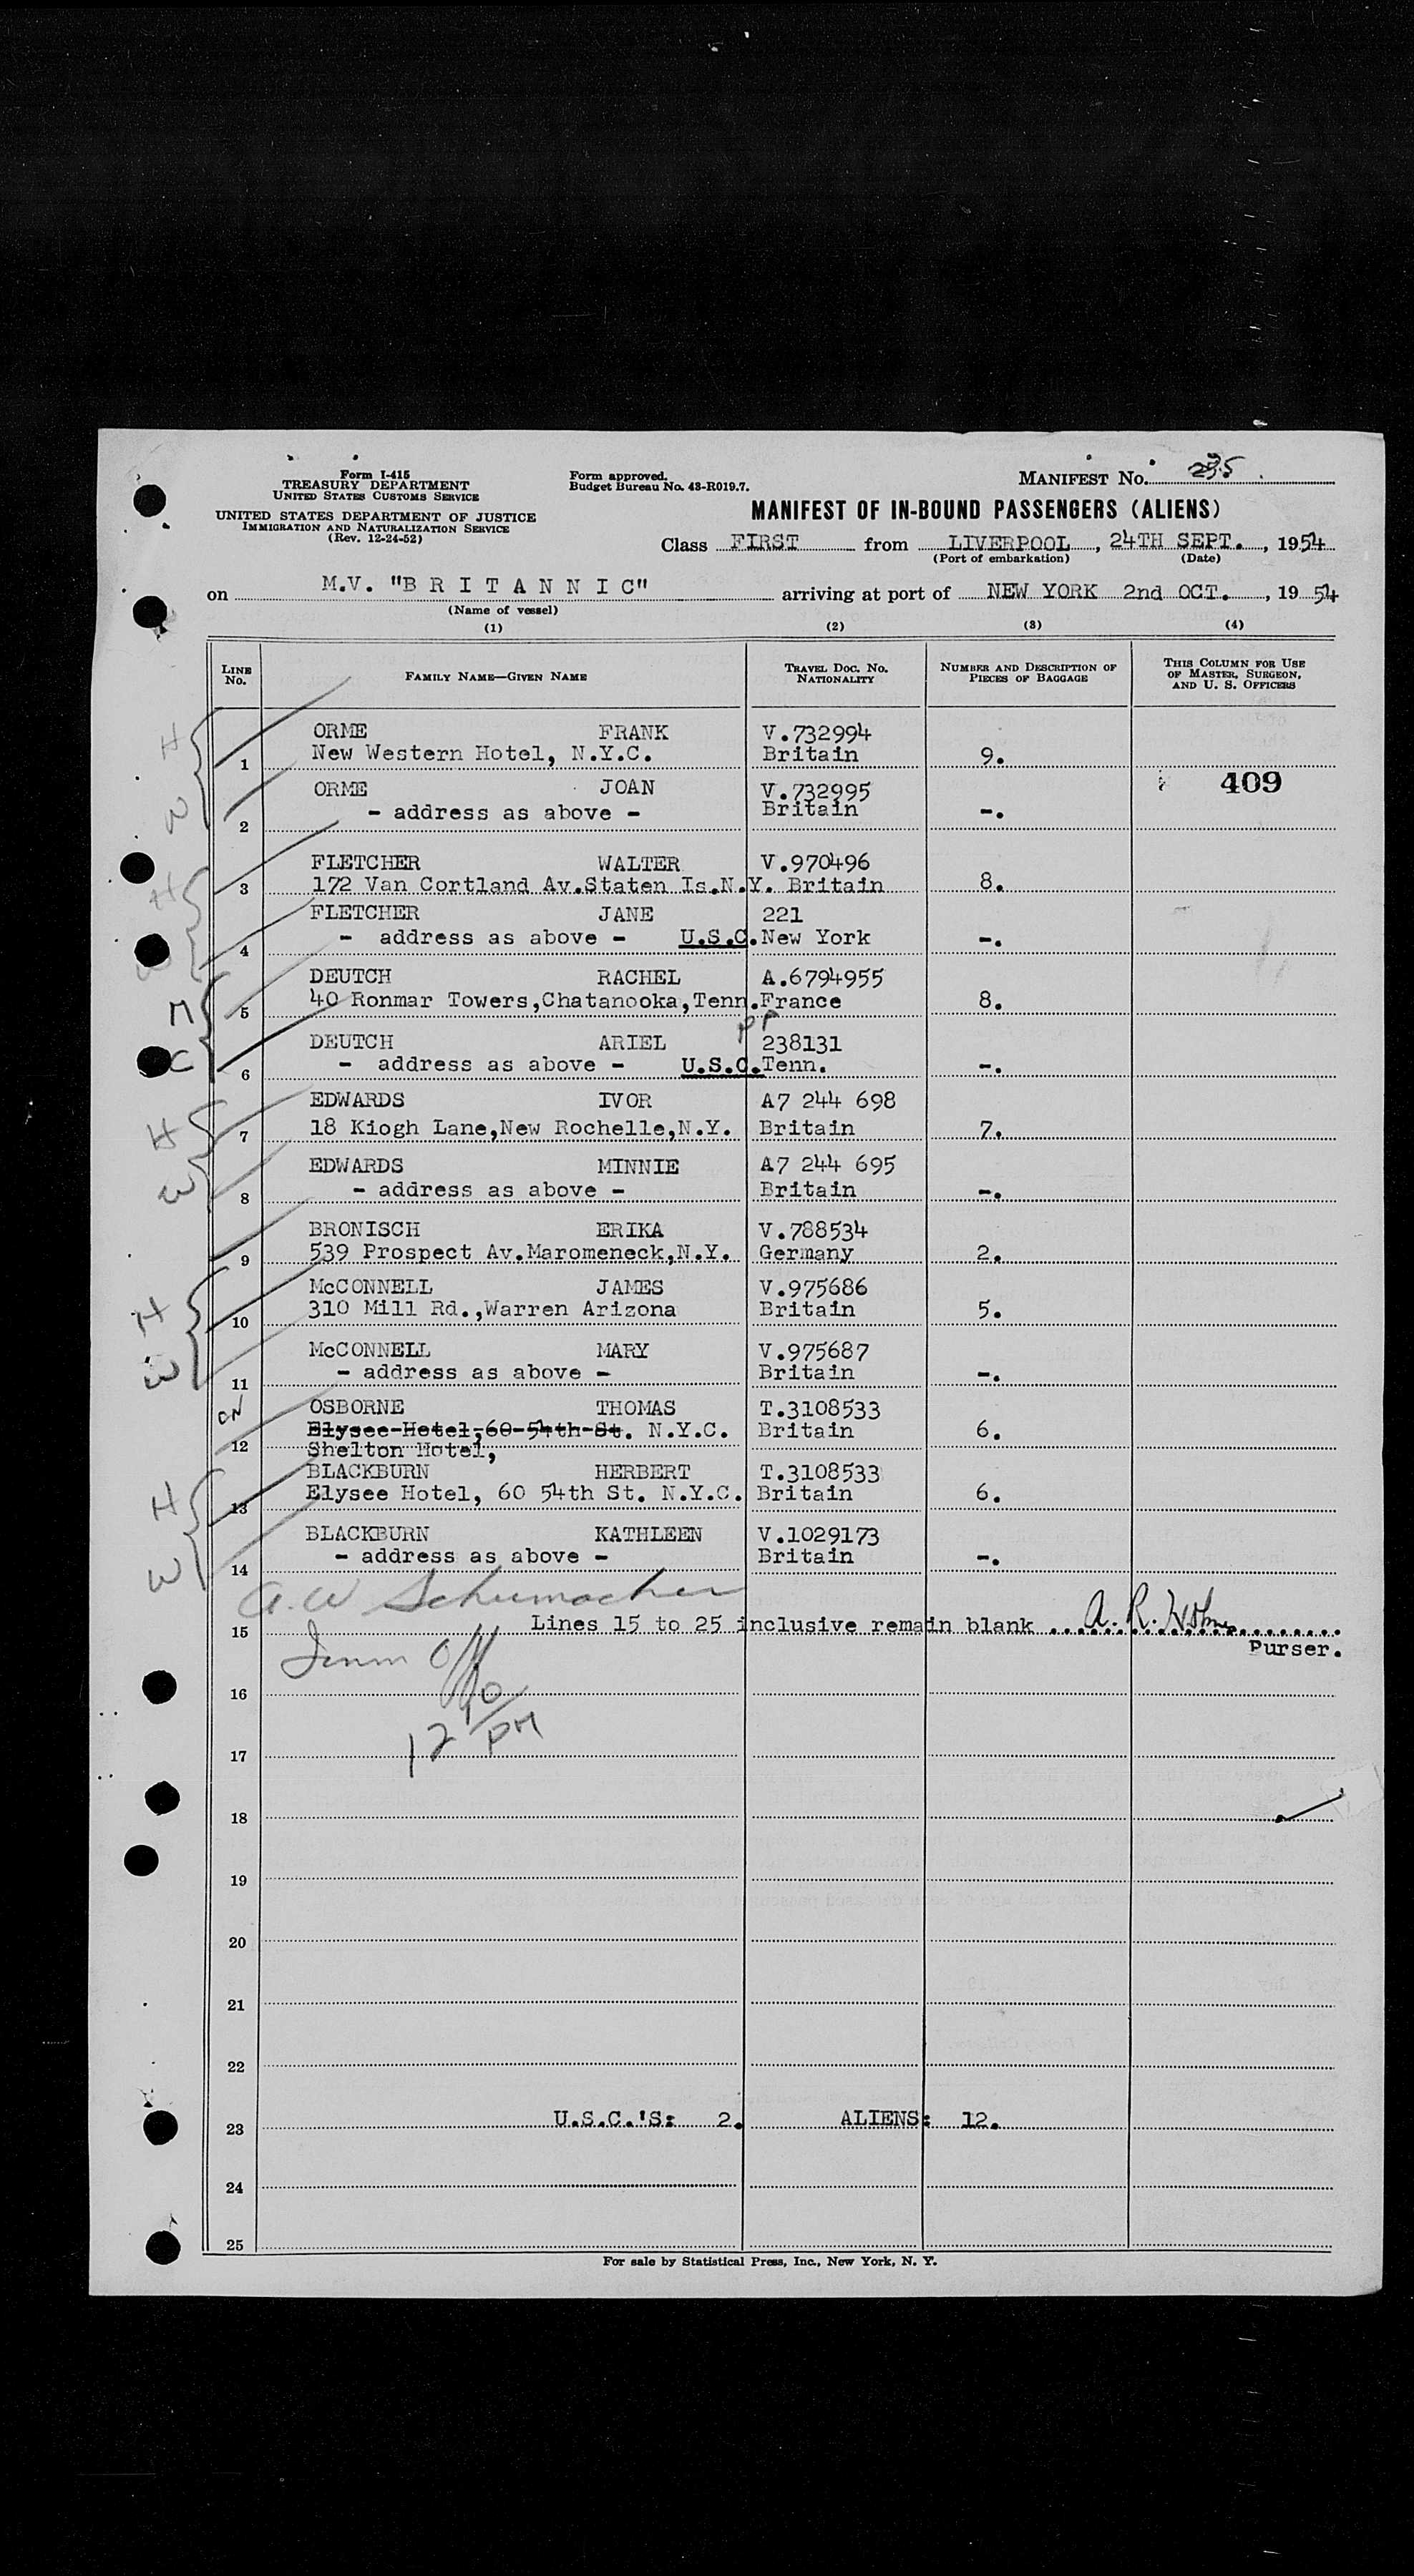 Form I-415
TREASURY DEPARTMENT
UNITED STATES CUSTOMS SERVICE
UNITED STATES DEPARTMENT OF JUSTICE
IMMIGRATION AND NATURALIZATION SERVICE
(Rev. 12-24-52)
Form approved.
Budget Bureau No. 43-R019.7.
MANIFEST No. 235
MANIFEST OF IN-BOUND PASSENGERS (ALIENS)
Class FIRST from LIVERPOOL, 24TH SEPT., 1954
(Port of embarkation) (Date)
on M.V. "B R I T A N N I C" arriving at port of NEW YORK 2nd OCT., 1954
(Name of vessel)
(1) (2) (3) (4)
LINE No. FAMILY NAME—GIVEN NAME TRAVEL DOC. NO. NATIONALITY NUMBER AND DESCRIPTION OF PIECES OF BAGGAGE THIS COLUMN FOR USE OF MASTER, SURGEON, AND U. S. OFFICERS
H ORME FRANK V.732994
1 New Western Hotel, N.Y.C. Britain 9.
409
W ORME JOAN V.732995
2 - address as above - Britain -.
H FLETCHER WALTER V.970496
3 172 Van Cortland Av.Staten Is.N.Y. Britain 8.
W FLETCHER JANE 221
4 - address as above - U.S.C. New York -.
M DEUTCH RACHEL A.6794955
5 40 Ronmar Towers,Chatanooka,Tenn. France 8.
PP
C DEUTCH ARIEL 238131
6 - address as above - U.S.C. Tenn. -.
H EDWARDS IVOR A7 244 698
7 18 Kiogh Lane,New Rochelle,N.Y. Britain 7.
W EDWARDS MINNIE A7 244 695
8 - address as above - Britain -.
BRONISCH ERIKA V.788534
9 539 Prospect Av.Maromeneck,N.Y. Germany 2.
H McCONNELL JAMES V.975686
10 310 Mill Rd.,Warren Arizona Britain 5.
W McCONNELL MARY V.975687
11 - address as above - Britain -.
OSBORNE THOMAS T.3108533
12 Elysee-Hotel,60-54th-St. N.Y.C. Britain 6.
Shelton Hotel,
H BLACKBURN HERBERT T.3108533
13 Elysee Hotel, 60 54th St. N.Y.C. Britain 6.
W BLACKBURN KATHLEEN V.1029173
14 - address as above - Britain -.
A.W Schumacher
15 Lines 15 to 25 inclusive remain blank A. R.
Purser.
Imm Off
16
12 10 PM
17
18
19
20
21
22
23 U.S.C.'S: 2. ALIENS: 12.
24
25
For sale by Statistical Press, Inc., New York, N. Y.